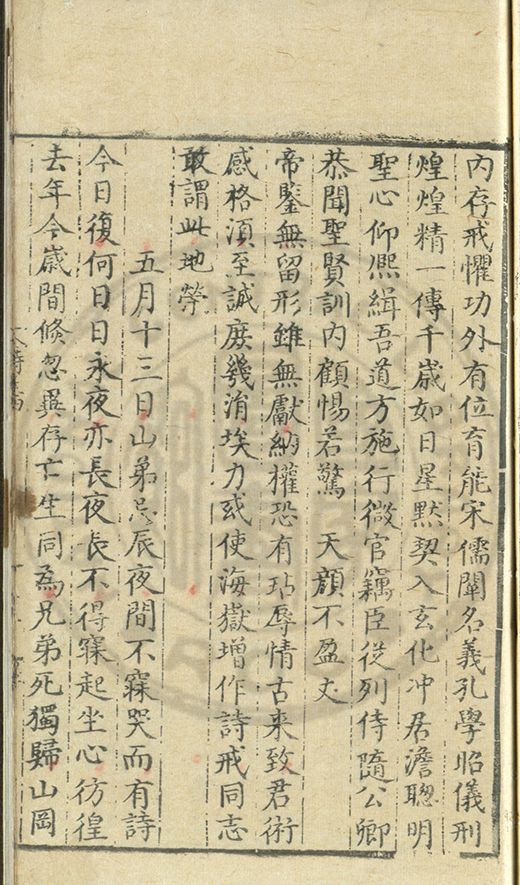 內存戒懼功外有位育能宋儒闡名義孔學昭儀刑
煌煌精一傳千歲如日星默契入玄化冲居澹聰明
聖心仰熙緝吾道方施行微官竊臣從列侍隨公卿
恭聞聖賢訓內顧惕若驚 天顏不盈丈
帝鑒無留形雖無獻納權恐有玷辱情古来致君術
感格須至誠庶幾涓埃力或使海嶽增作詩戒同志
敢謂此地榮
五月十三日山弟忌辰夜間不寐哭而有詩
今日復何日日永夜亦長夜長不得寐起坐心彷徨
去年今歲間倏忽異存亡生同為兄弟死獨歸山岡